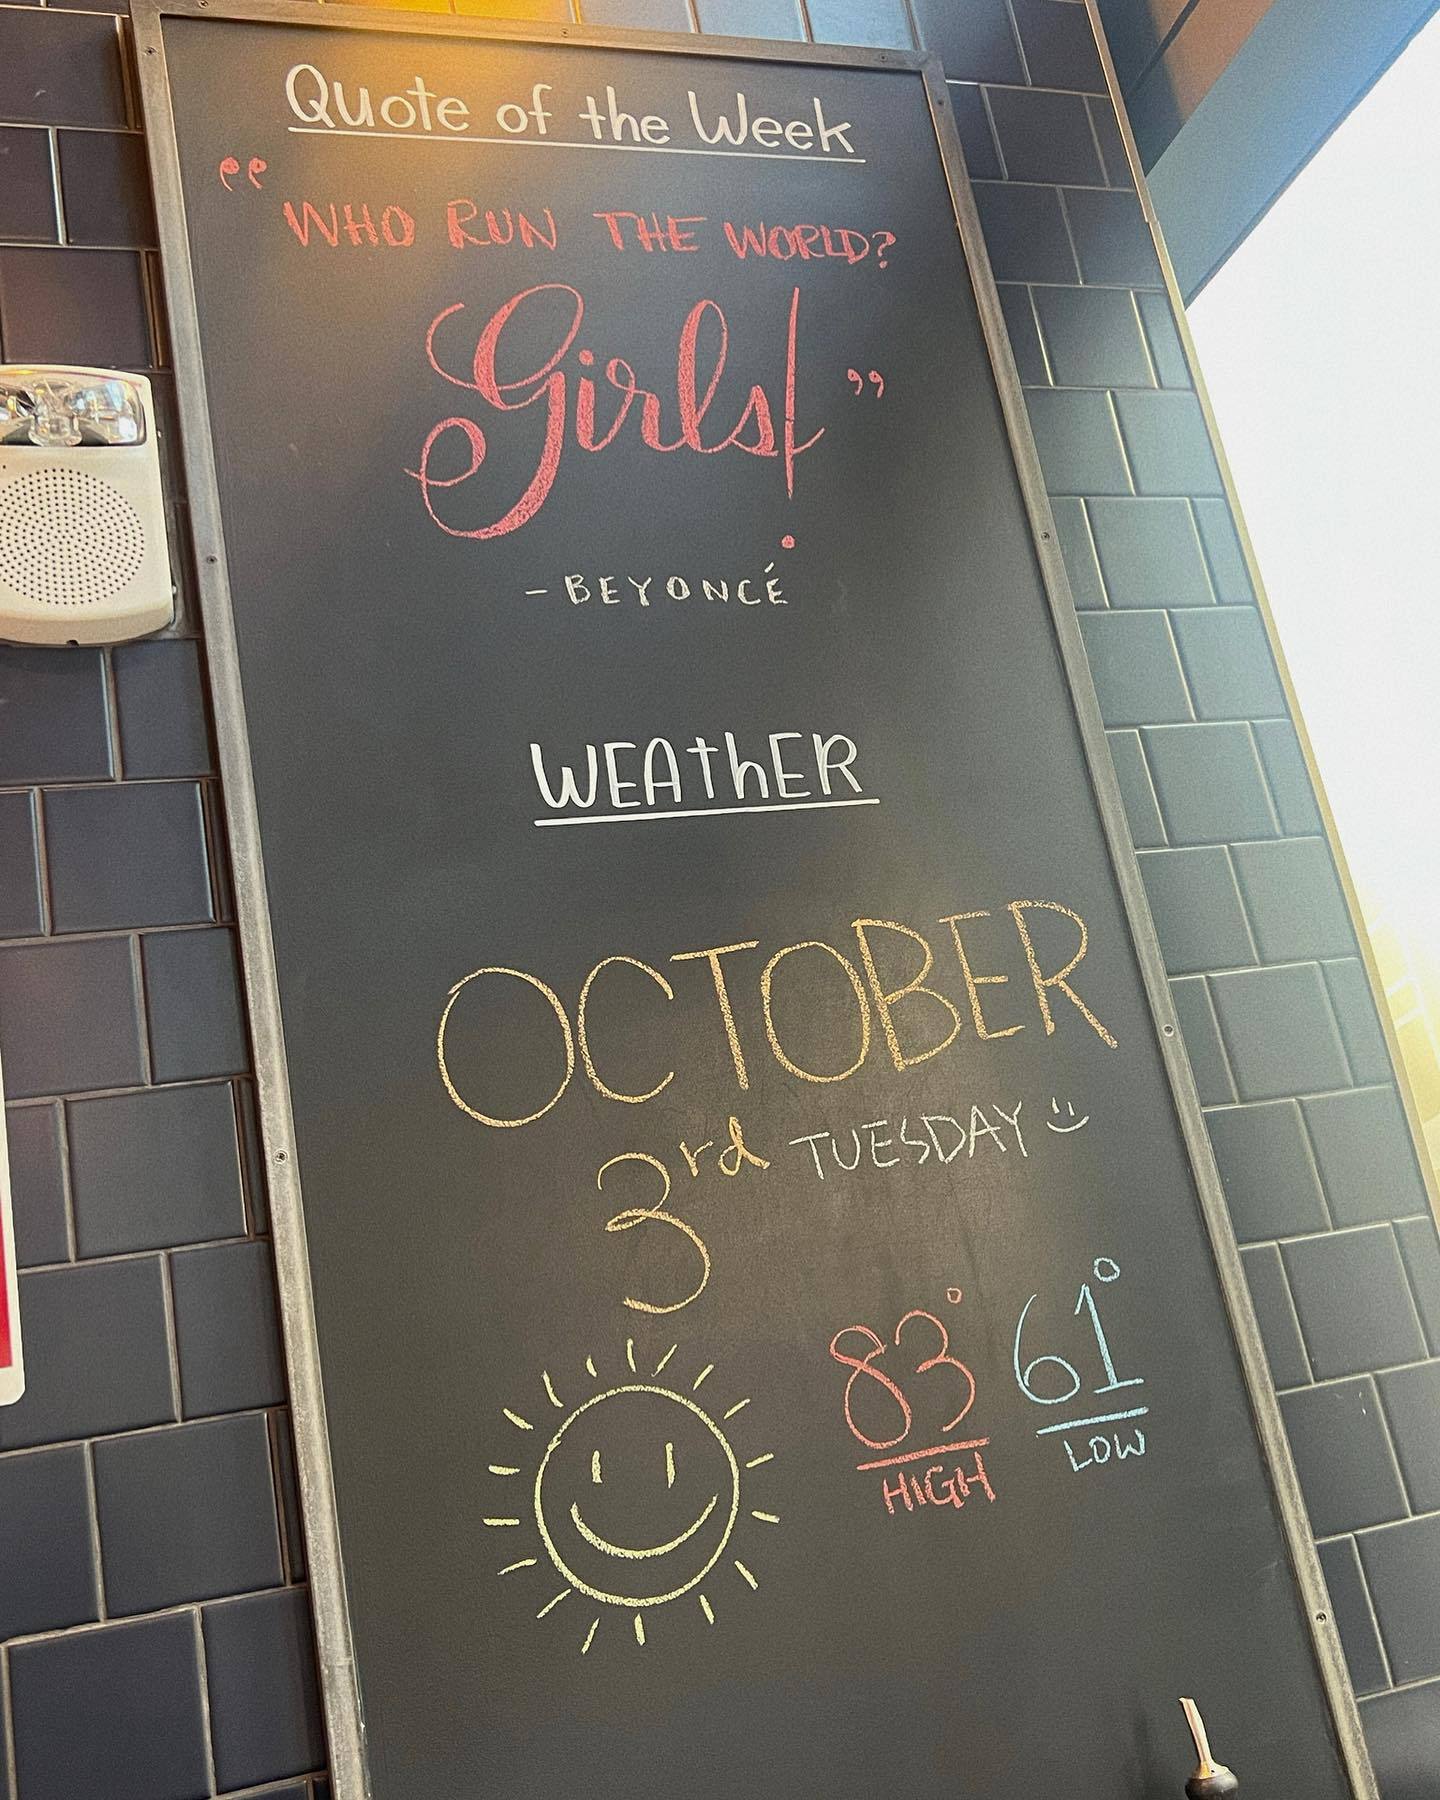 Quote of the Week
“WHO RUN THE WORLD?
Girls!”
- BEYONCÉ
WEAthER
OCTOBER
3rd TUESDAY
83° 61°
HIGH LOW